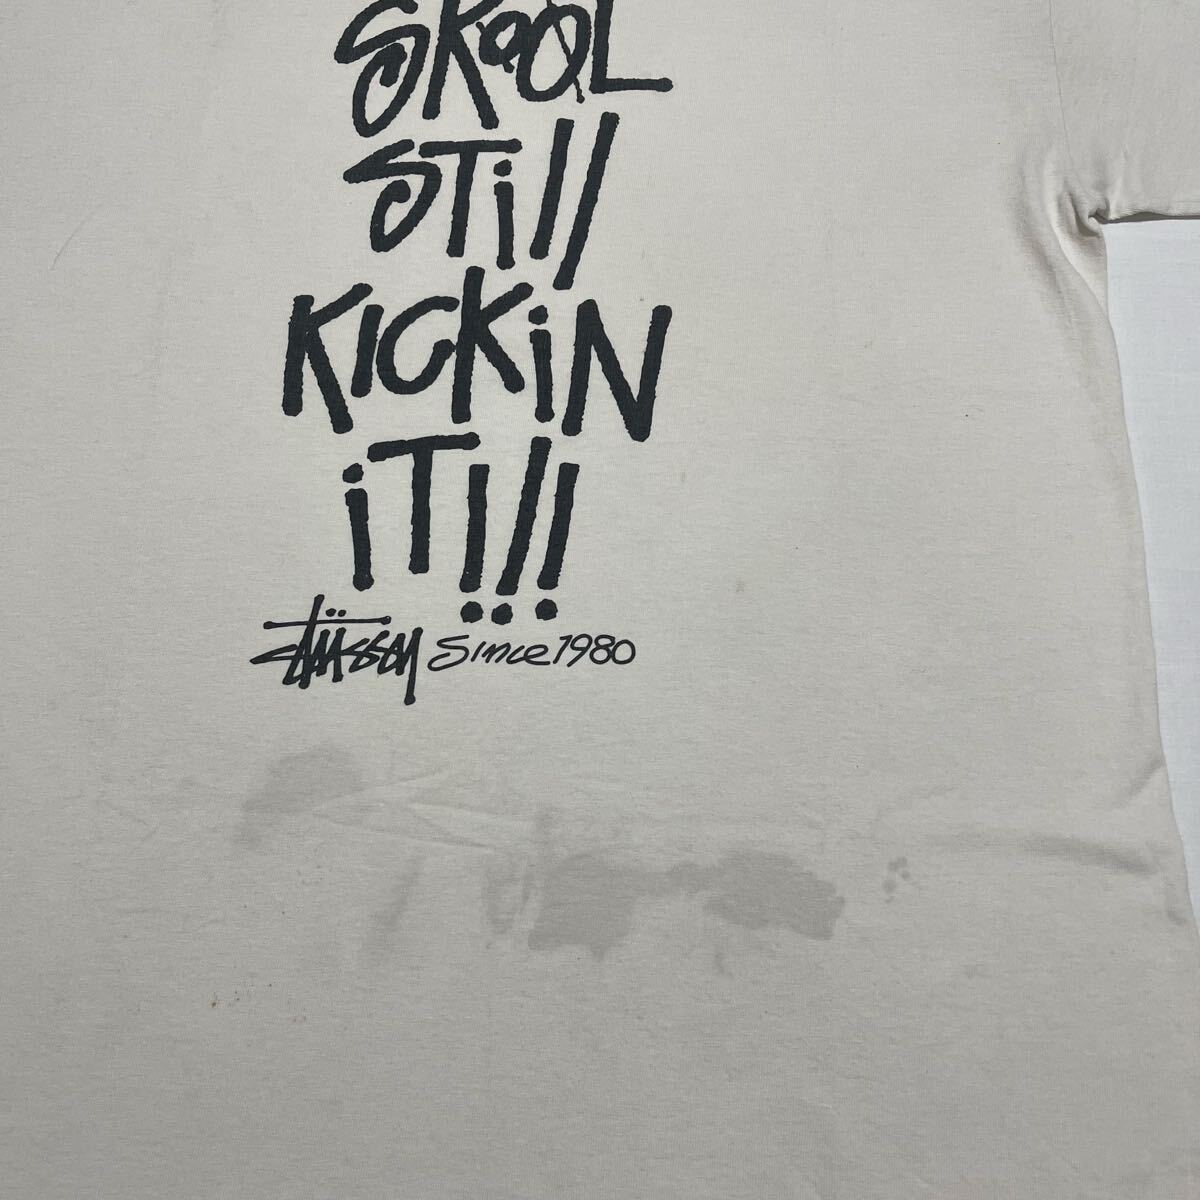 SKOOL
STill
KICKiN
iT!!!
Stüssy Since 1980